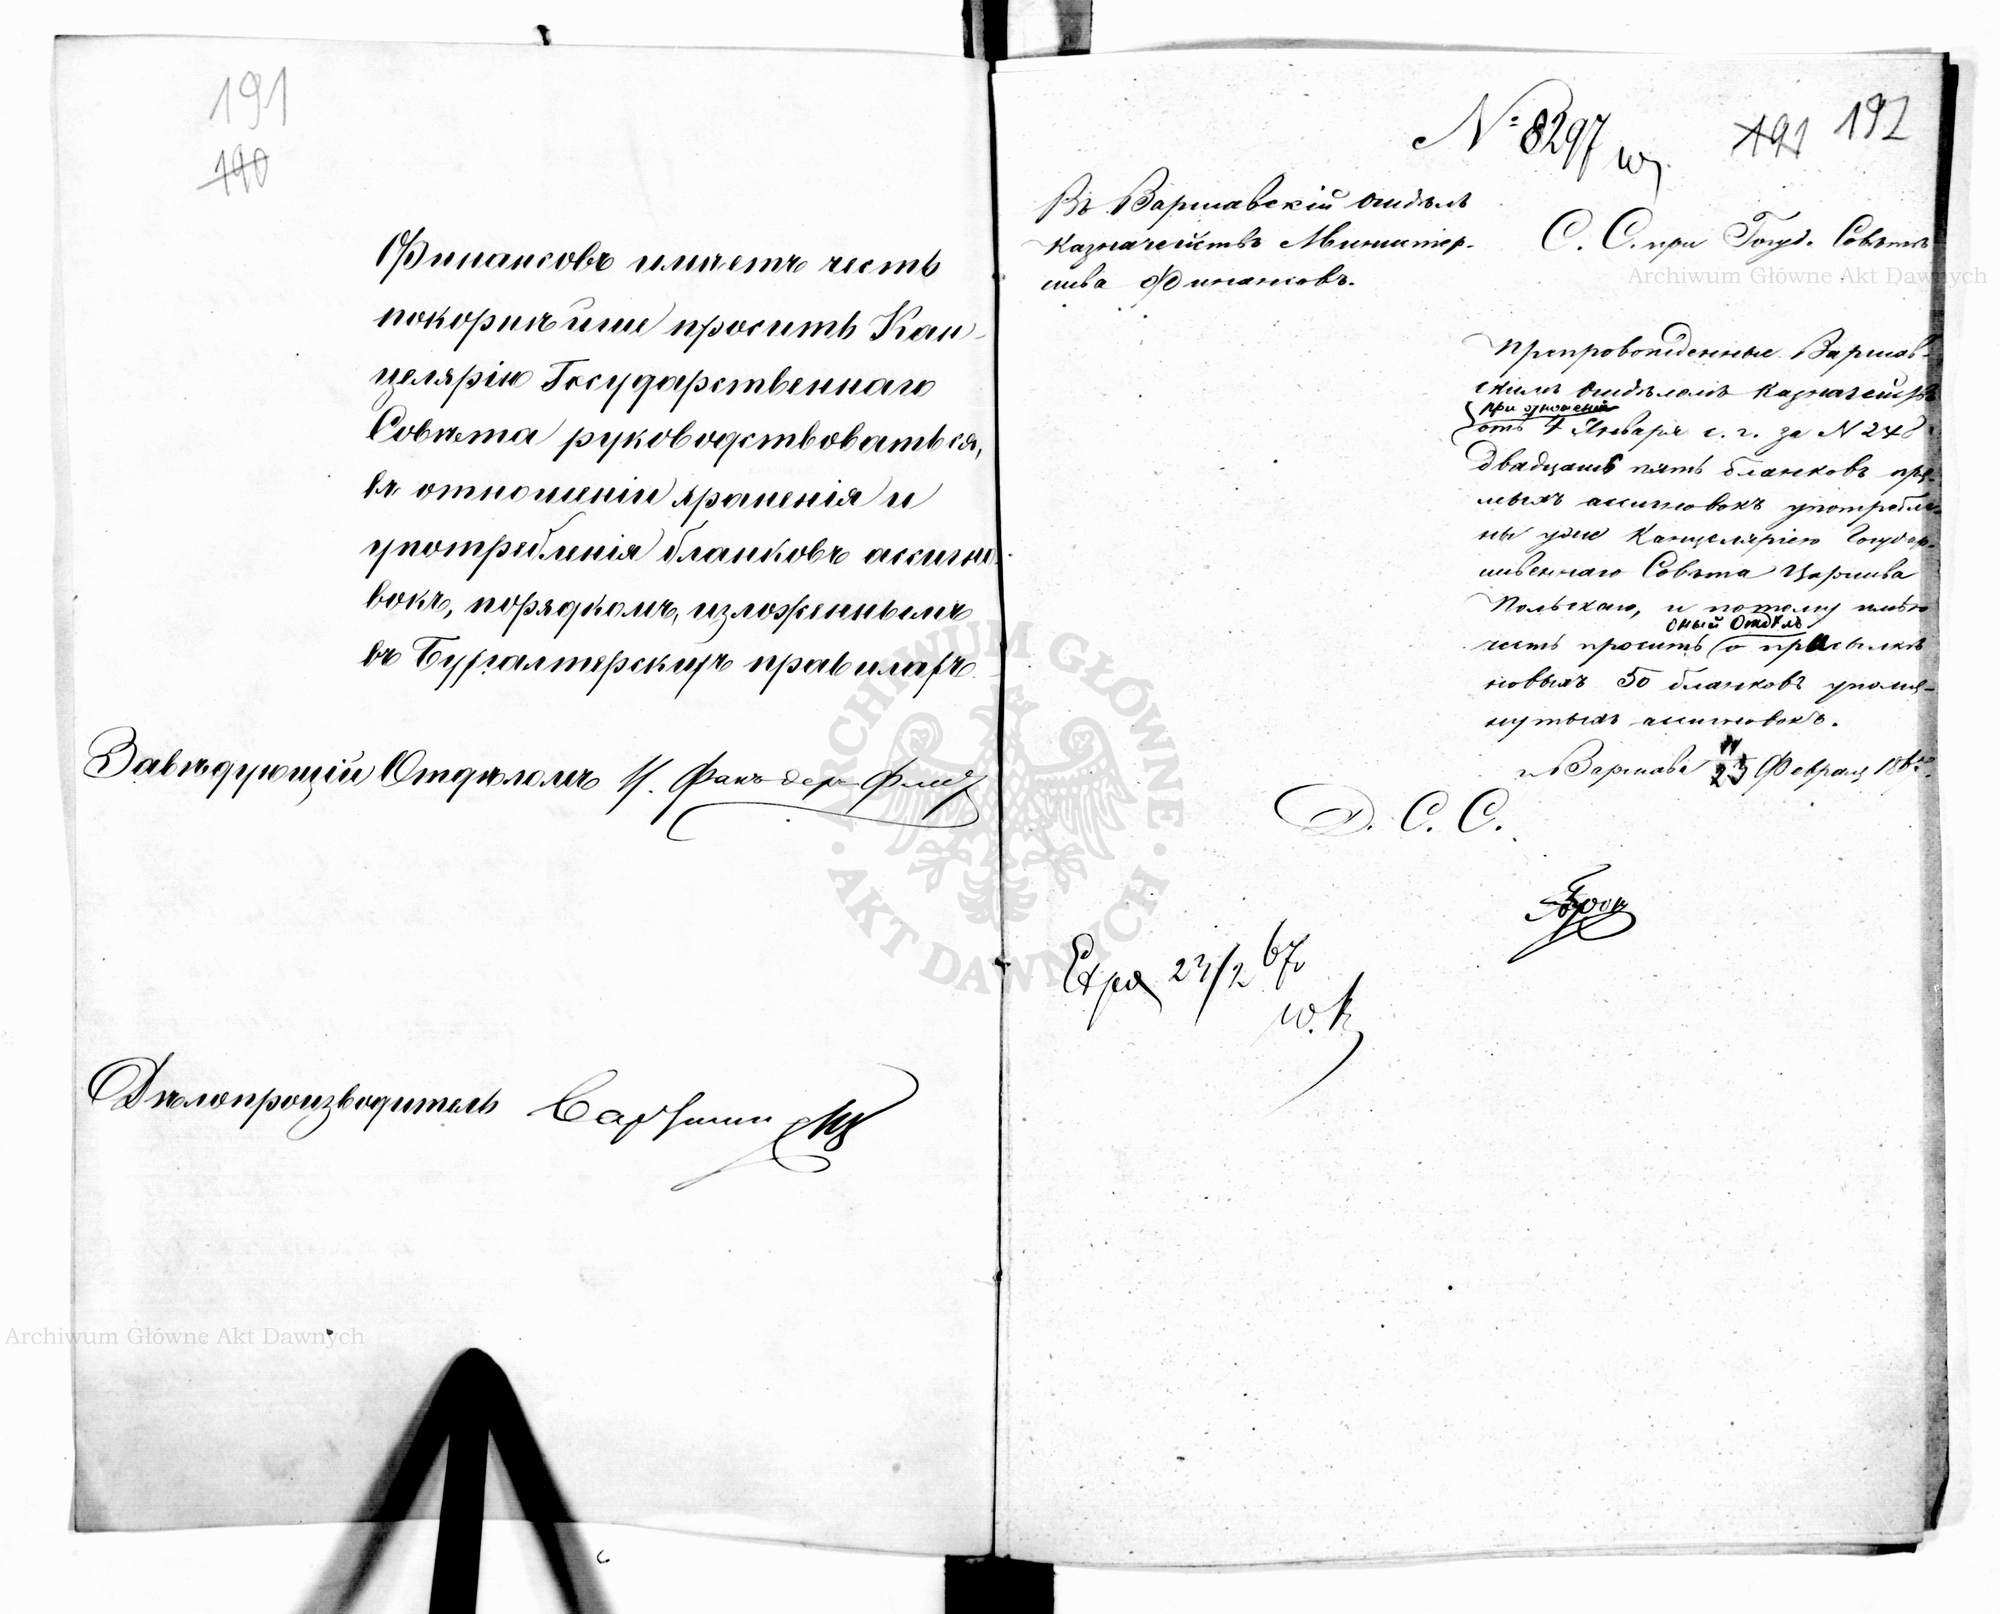 191
190
Финансовъ имѣетъ честь
покорнѣйше просить Кан-
целярію Государственнаго
Совѣта руководствоваться,
въ отношеніи храненія и
употребленія бланковъ ассигно-
вокъ, порядкомъ, изложеннымъ
въ Бухгалтерскихъ правилахъ.
Завѣдующій Отдѣломъ
Дѣлопроизводитель
№ 8297
191 192
Въ Варшавскій Отдѣлъ
Казначействъ Министер-
ства Финансовъ.
С. С. при Госуд. Совѣтѣ
Препровожденные Варшав-
скимъ Отдѣломъ Казначействъ
при отношеніи
отъ 4 Января с. г. за N 248
двадцать пять бланковъ пря-
мыхъ ассигновокъ употребле-
ны уже Канцеляріею Государ-
ственнаго Совѣта Царства
Польскаго, и потому имѣю
оный Отдѣлъ
честь просить о присылкѣ
новыхъ 50 бланковъ упомя-
нутыхъ ассигновокъ.
г. Варшава 11/23 Февраля 1867
Д. С. С.
23/2 67
w. k.
Archiwum Główne Akt Dawnych
Archiwum Główne Akt Dawnych
ARCHIWUM GŁÓWNE AKT DAWNYCH